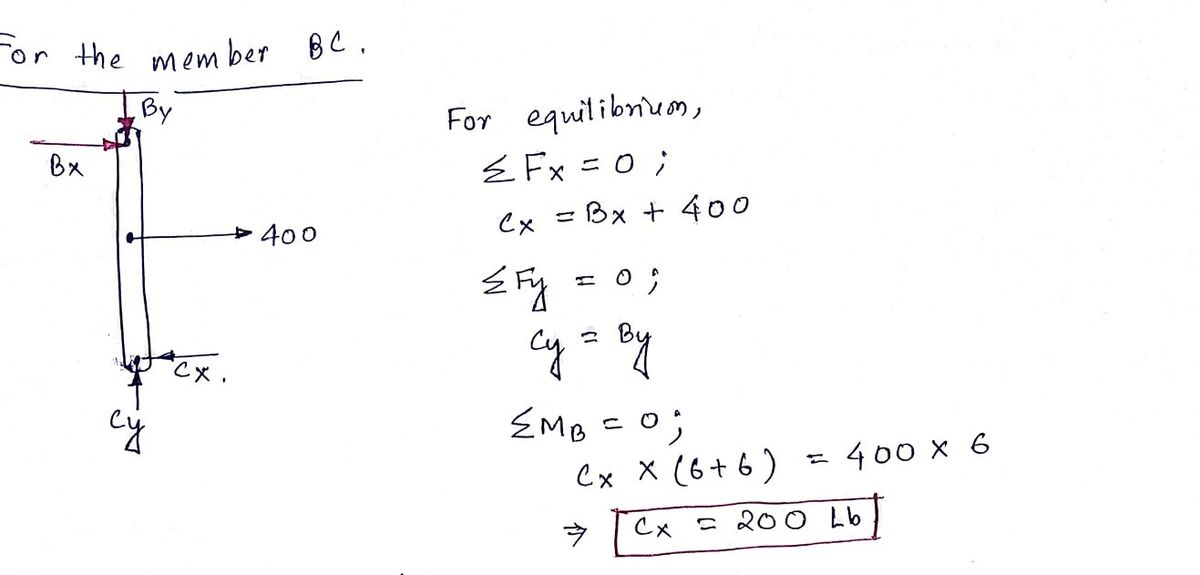 For the member BC.
By
Bx
400
Cx.
Cy
For equilibrium,
ΣFx = 0 ;
Cx = Bx + 400
ΣFy = 0 ;
Cy = By
ΣMB = 0 ;
Cx × (6+6) = 400 × 6
⇒ Cx = 200 Lb